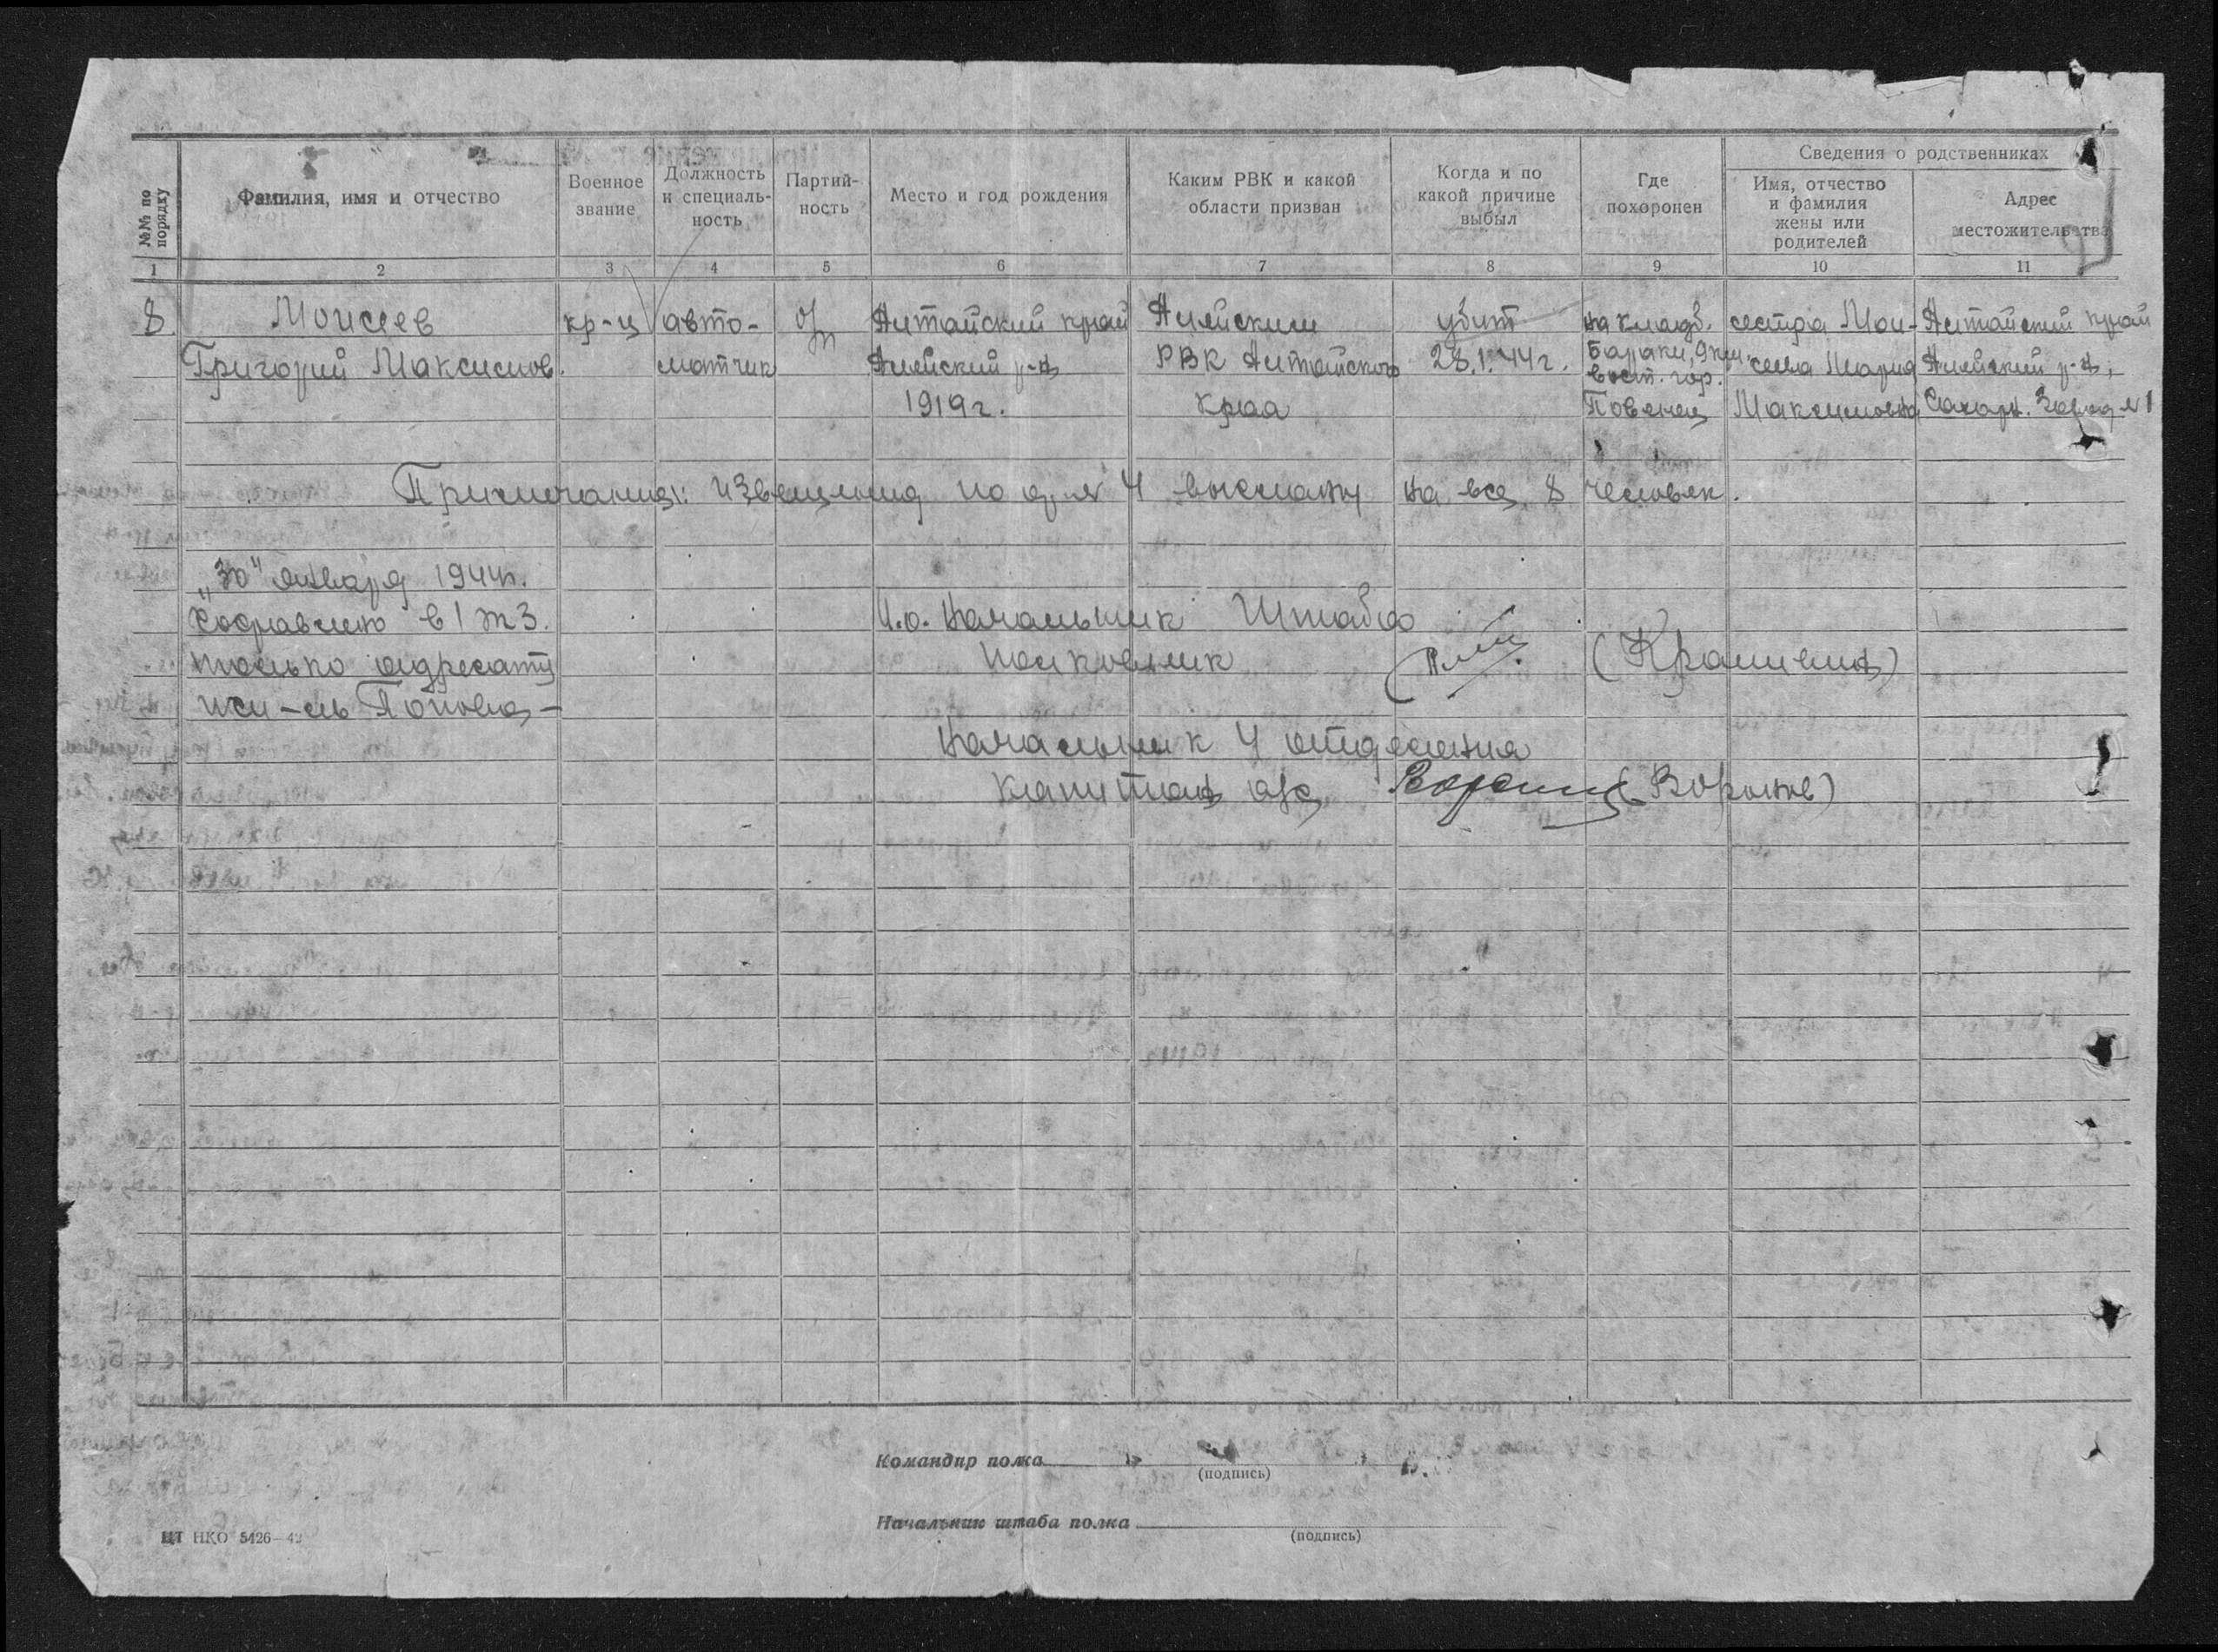 Сведения о родственниках
№№ по порядку
Фамилия, имя и отчество
Военное звание
Должность и специаль-ность
Партий-ность
Место и год рождения
Каким РВК и какой области призван
Когда и по какой причине выбыл
Где похоронен
Имя, отчество и фамилия жены или родителей
Адрес местожительства
1 2 3 4 5 6 7 8 9 10 11
8 Моисеев кр-ц авто- б/п Алтайский край Алейским убит на кладб. сестра Мои- Алтайский край
Григорий Максимов. матчик Алейский р-н РВК Алтайского 28.1.44г. Бараки, 9км. сеева Мария Алейский р-н,
вост. гор.
1919г. края Повенец Максимовна Сахарн. Завод №1
Примечание: извещения по ф. №4 высланы на все 8 человек.
„30" января 1944г.
Составлено в 1 экз. И.о. Начальник Штаба
только адресату Полковник (Крашенин)
исп-ль Попова-
Начальник 4 отделения
капитан а/с (Воронов)
Командир полка
(подпись)
Начальник штаба полка
(подпись)
ЦТ НКО 5426—42